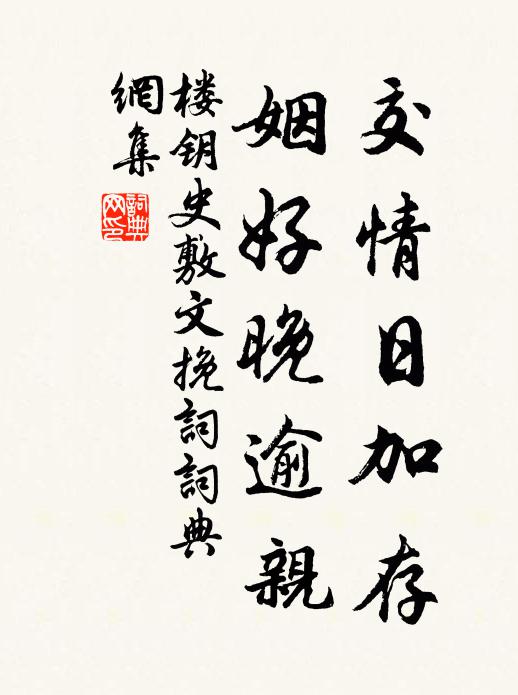 交情日加存
姻好晚逾親
楼钥史敷文挽詞詞典
網集
詞典
网印